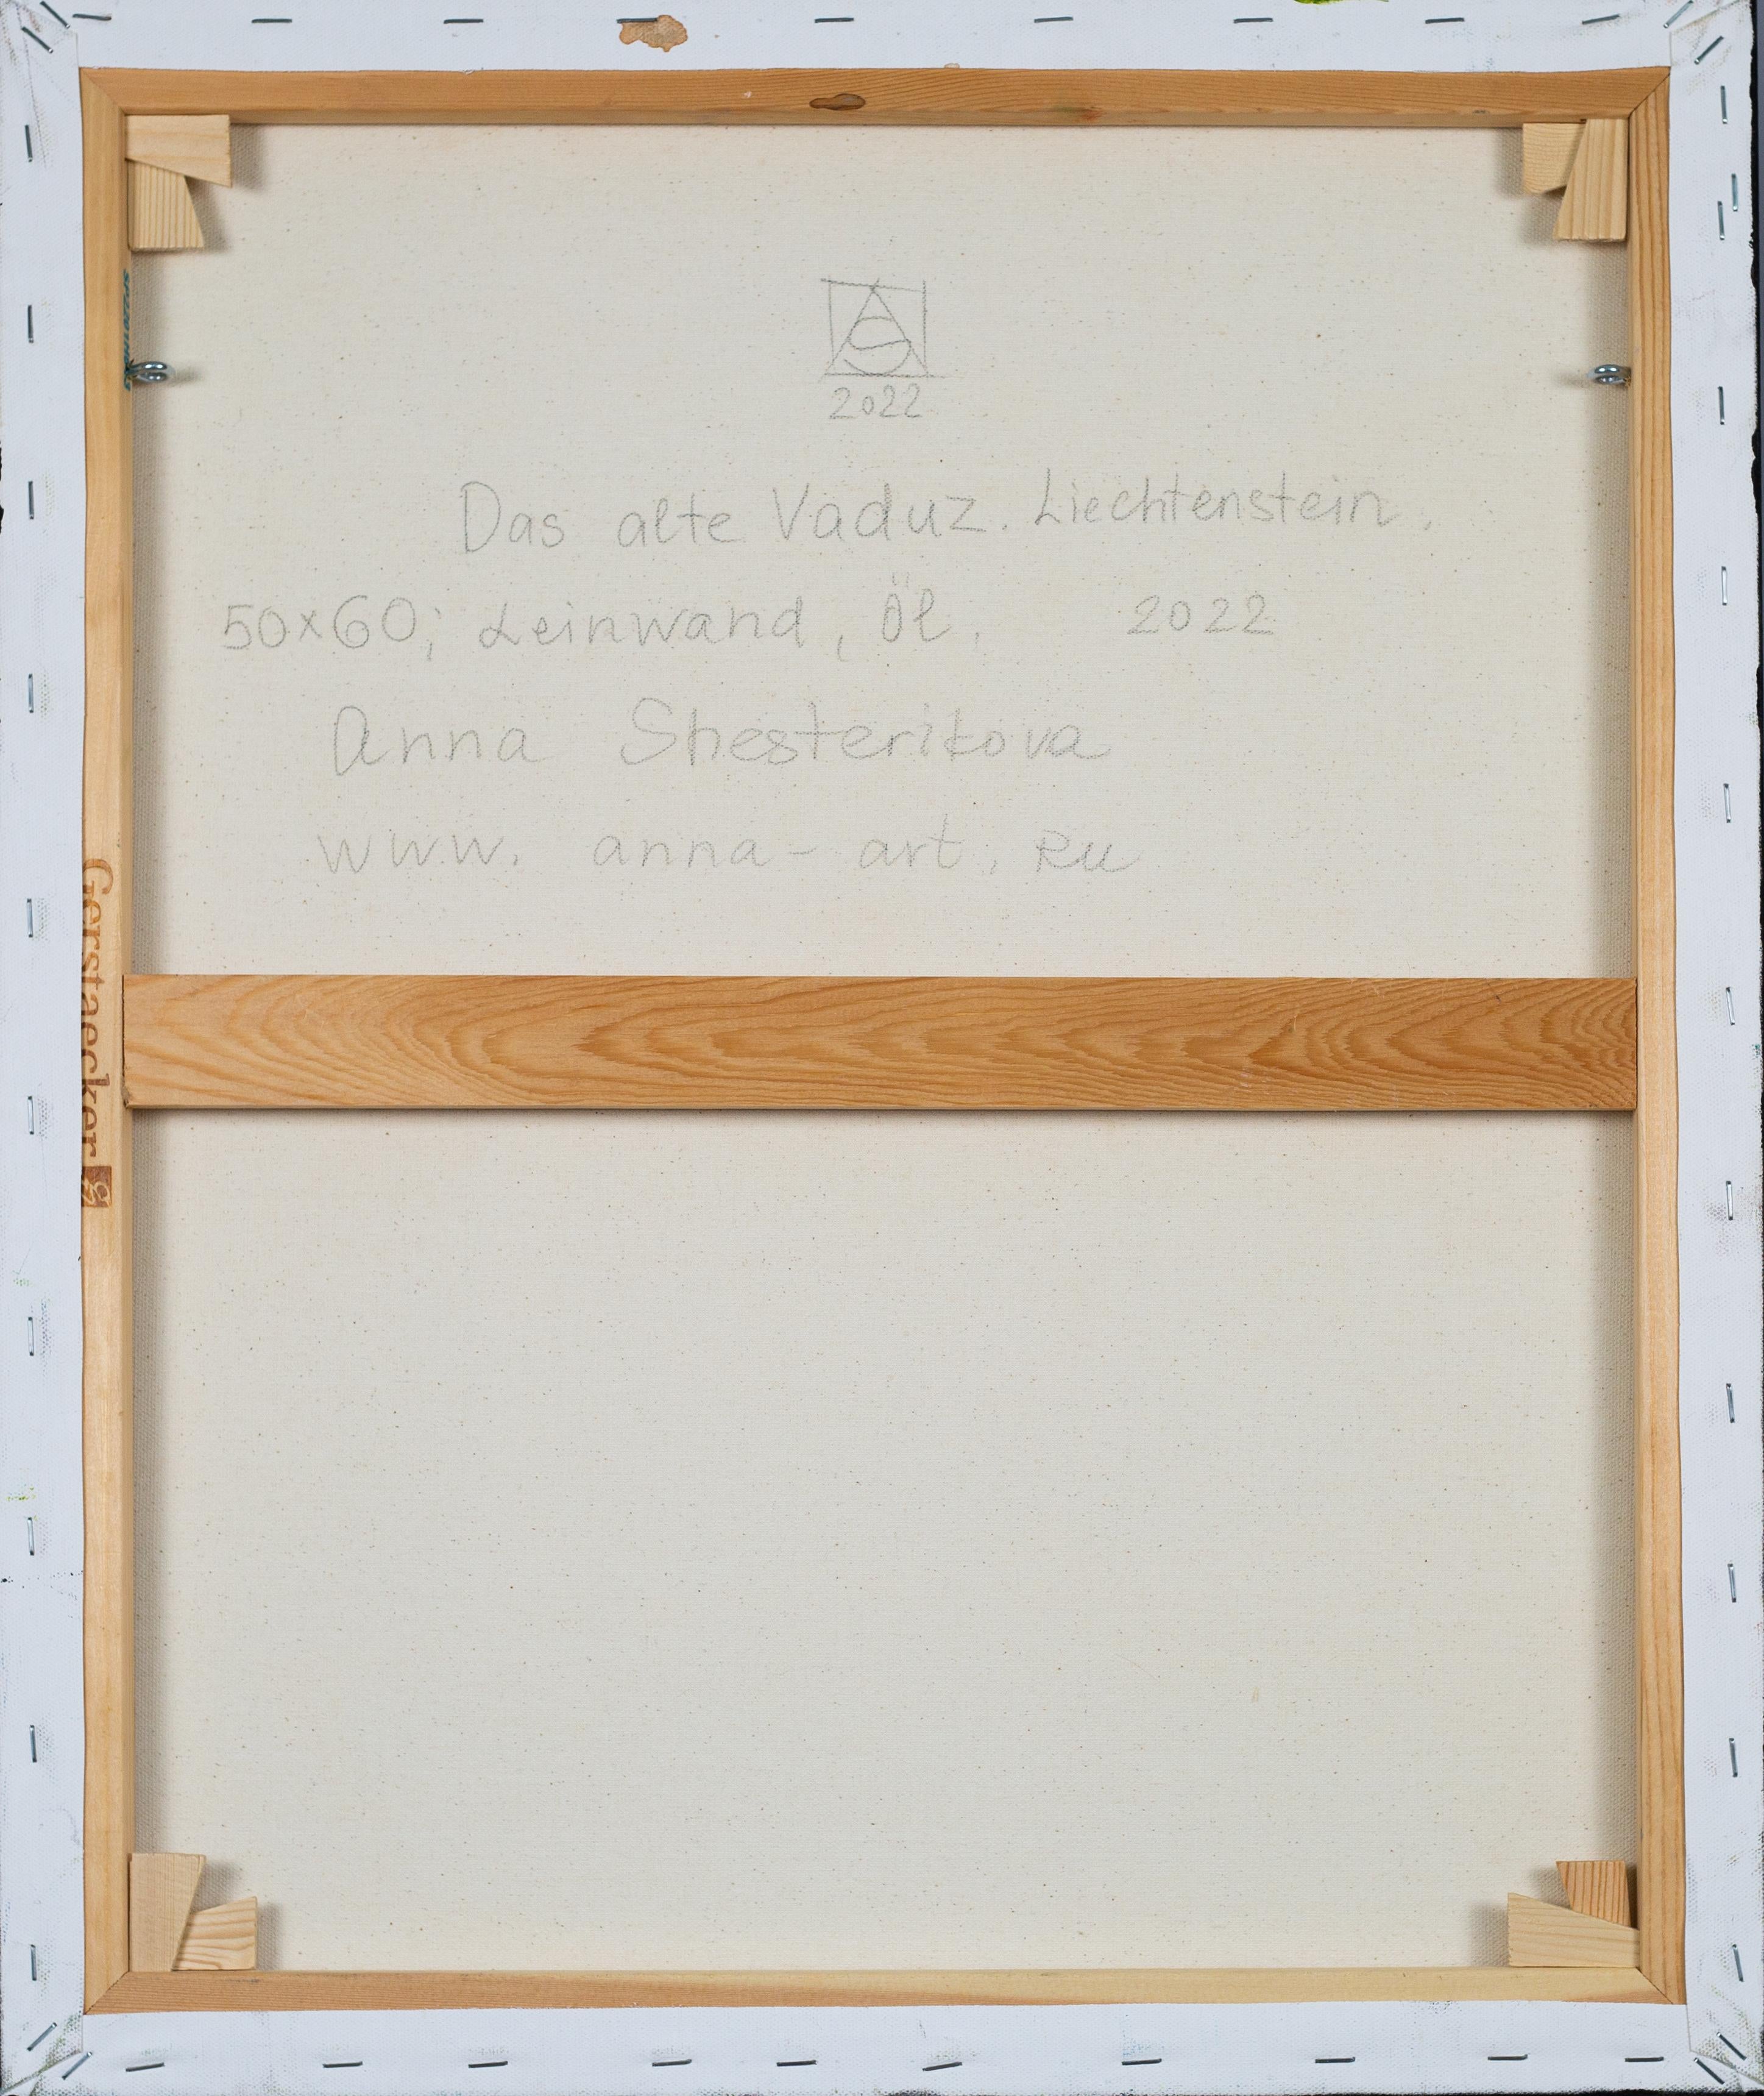 2022
Das alte Vaduz. Liechtenstein.
50x60; Leinwand, Öl. 2022
Anna Shesterikova
www. anna- art. Ru
Gerstaecker